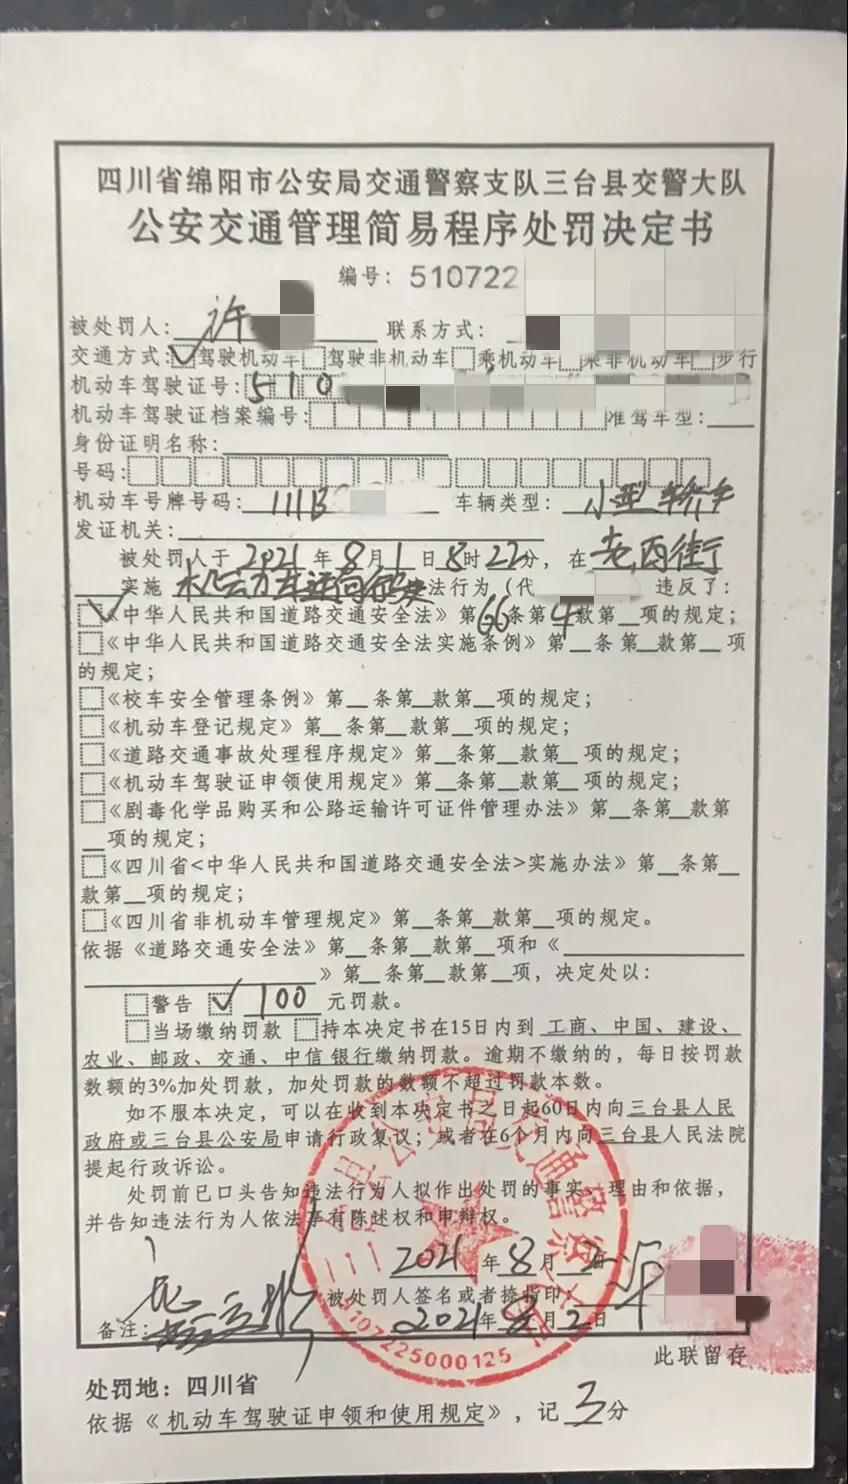 四川省绵阳市公安局交通警察支队三台县交警大队
公安交通管理简易程序处罚决定书
编号：510722
被处罚人：许 联系方式：
交通方式：☑驾驶机动车□驾驶非机动车□乘机动车□乘非机动车□步行
机动车驾驶证号：510
机动车驾驶证档案编号： 准驾车型：
身份证明名称：
号码：
机动车号牌号码：川B 车辆类型：小型轿车
发证机关：
被处罚人于2021年8月1日8时22分，在老西街
实施机动车逆向行驶违法行为（代 违反了：
☑《中华人民共和国道路交通安全法》第66条第4款第__项的规定；
□《中华人民共和国道路交通安全法实施条例》第__条第__款第__项
的规定；
□《校车安全管理条例》第__条第__款第__项的规定；
□《机动车登记规定》第__条第__款第__项的规定；
□《道路交通事故处理程序规定》第__条第__款第__项的规定；
□《机动车驾驶证申领使用规定》第__条第__款第__项的规定；
□《剧毒化学品购买和公路运输许可证件管理办法》第__条第__款第
__项的规定；
□《四川省<中华人民共和国道路交通安全法>实施办法》第__条第__
款第__项的规定；
□《四川省非机动车管理规定》第__条第__款第__项的规定。
依据《道路交通安全法》第__条第__款第__项和《
》第__条第__款第__项，决定处以：
□警告 ☑100元罚款。
□当场缴纳罚款 □持本决定书在15日内到 工商、中国、建设、
农业、邮政、交通、中信 银行缴纳罚款。逾期不缴纳的，每日按罚款
数额的3%加处罚款，加处罚款的数额不超过罚款本数。
如不服本决定，可以在收到本决定书之日起60日内向三台县人民
政府或三台县公安局申请行政复议；或者在6个月内向三台县人民法院
提起行政诉讼。
处罚前已口头告知违法行为人拟作出处罚的事实、理由和依据，
并告知违法行为人依法享有陈述权和申辩权。
2021年8月2日
被处罚人签名或者捺指印 许
备注： 2021年8月2日
5107225000125
此联留存
处罚地：四川省
依据《机动车驾驶证申领和使用规定》，记3分